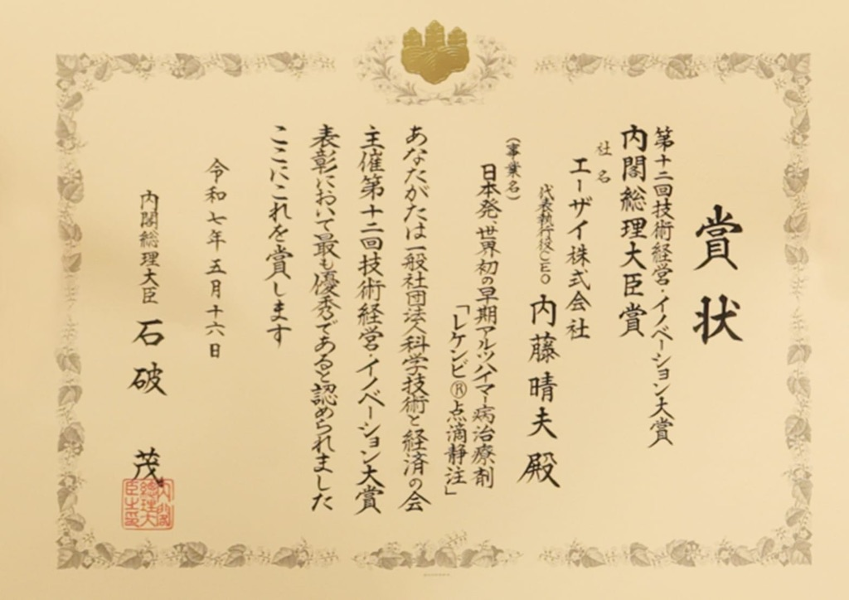 賞状
第十二回技術経営・イノベーション大賞
内閣総理大臣賞
社名
エーザイ株式会社
代表執行役CEO 内藤晴夫殿
(事業名)
日本発世界初の早期アルツハイマー病治療剤
「レケンビ®点滴静注」
あなたがたは一般社団法人科学技術と経済の会
主催第十二回技術経営・イノベーション大賞
表彰において最も優秀であると認められました
ここにこれを賞します
令和七年五月十六日
内閣総理大臣 石破 茂
内閣
總理大
臣之印